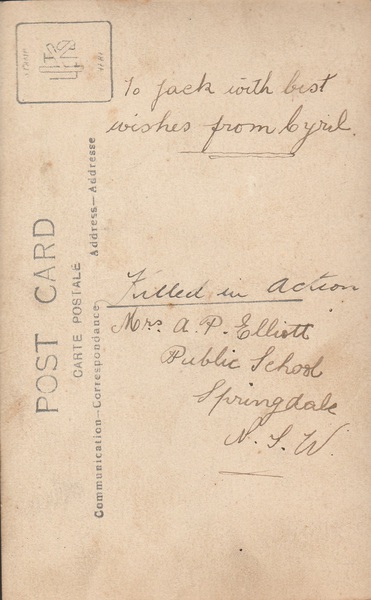 To Jack with best
wishes from Cyril.
Killed in Action
Mrs A. P. Elliott
Public School
Springdale
N. S. W.
POST CARD
CARTE POSTALE
Communication—Correspondance
Address—Addresse